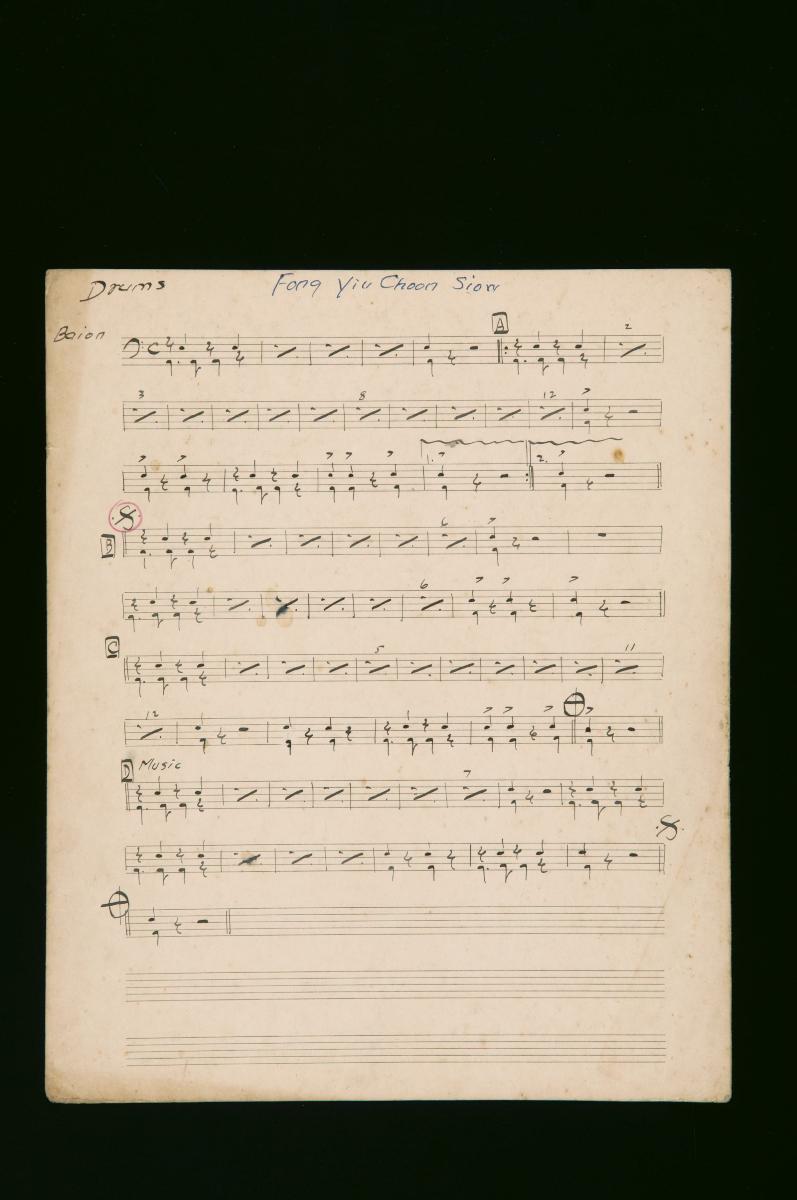 Drums Fong Yiu Choon Siow
Baion
A
2
3 8 12
1. 2.
B
6
6
C
5 11
12
D Music
7